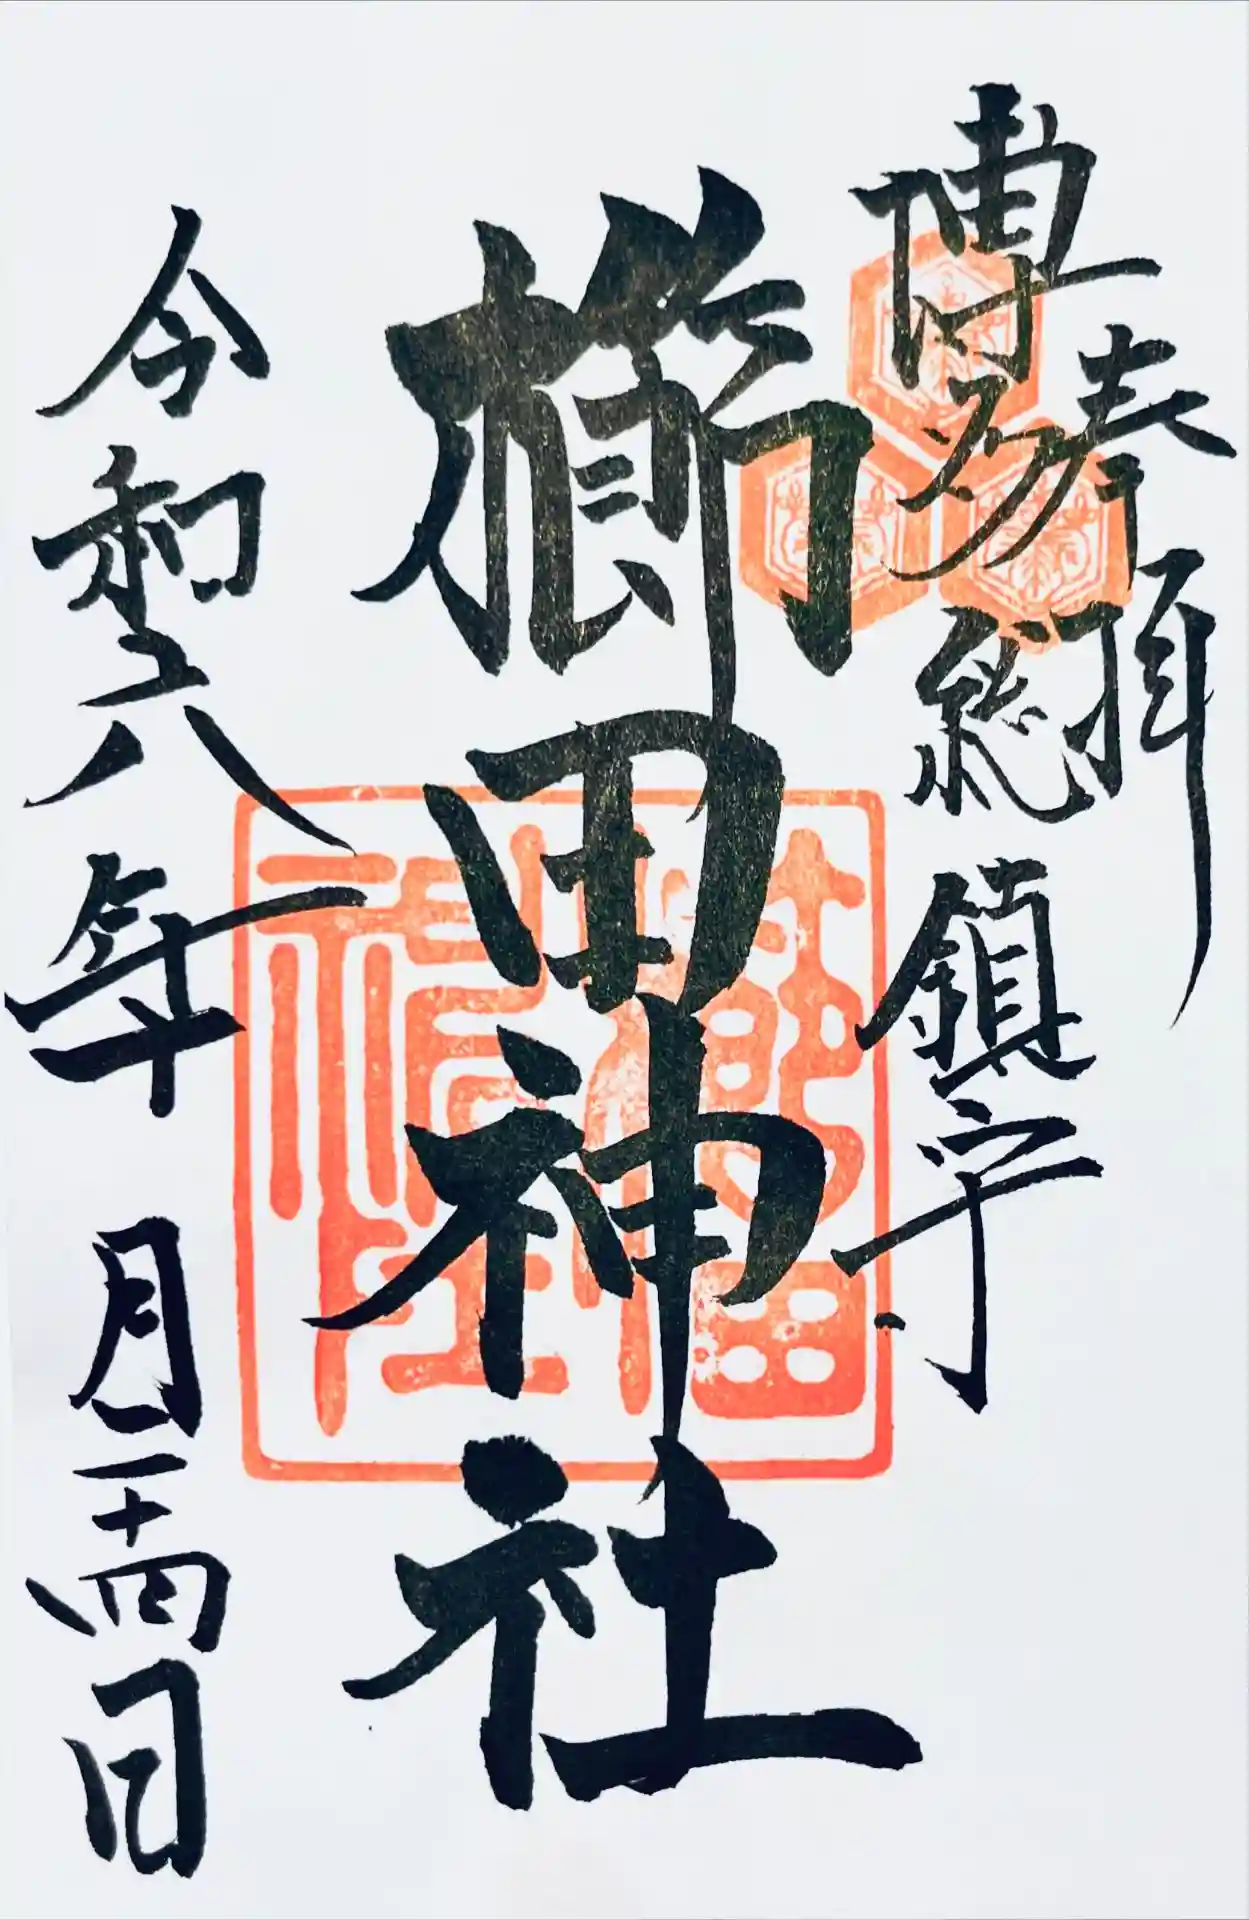 奉拝
博多総鎮守
櫛田神社
令和六年 月二十四日